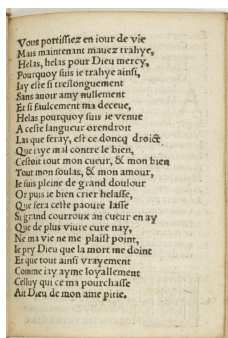 Vous portissiez en iour de vie
Mais maintenant mauez trahye,
Helas, helas pour Dieu mercy,
Pourquoy suis ie trahye ainsi,
Iay esté si treslonguement
Sans auoir amy nullement
Et si faulcement ma deceue,
Helas pourquoy suis ie venue
A ceste langueur orendroit
Las que feray, est ce doncq droict
Que iaye mal contre le bien,
Cestoit tout mon cueur, & mon bien
Tout mon soulas, & mon amour,
Ie suis pleine de grand doulour
Or puis ie bien crier helasse,
Que fera ceste paoure lasse
Si grand courroux au cueur en ay
Que de plus viure cure nay,
Ne ma vie ne me plaist point,
Ie pry Dieu que la mort me doint
Et que tout ainsi vrayement
Comme iay ayme loyallement
Celluy qui ce ma pourchasse
Ait Dieu de mon ame pitie.